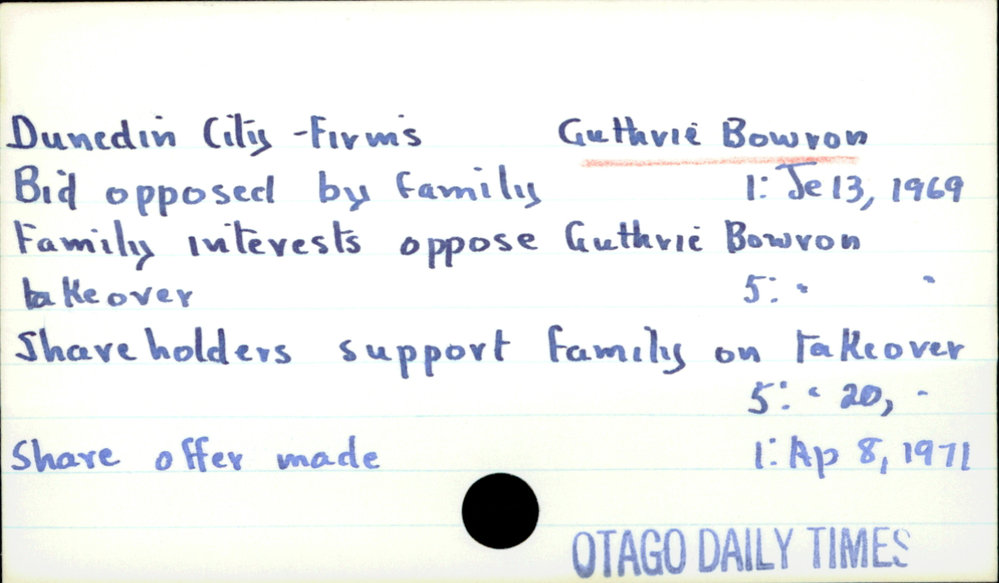 Dunedin City - Firms Guthrie Bowron
Bid opposed by family 1: Je 13, 1969
Family interests oppose Guthrie Bowron
takeover 5: " "
Shareholders support family on takeover
5: " 20, "
Share offer made 1: Ap 8, 1971
OTAGO DAILY TIMES